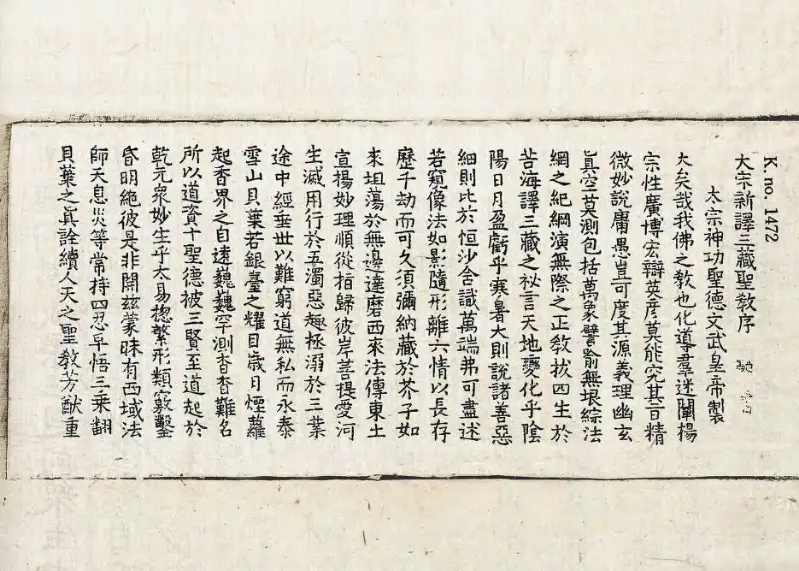 K. no. 1472
大宗新譯三藏聖敎序
太宗神功聖德文武皇帝製
大矣哉我佛之敎也化導羣迷闡楊
宗性廣博宏辯英彦莫能究其旨精
微妙說庸愚豈可度其源義理幽玄
眞空莫測包括萬象譬喻無垠綜法
網之紀綱演無際之正敎拔四生於
苦海譯三藏之秘言天地變化乎陰
陽日月盈虧乎寒暑大則說諸善惡
細則比於恒沙含識萬端弗可盡述
若窺像法如影隨形離六情以長存
歷千劫而可久須彌納藏於芥子如
來坦蕩於無邊達磨西來法傳東土
宣揚妙理順從指歸彼岸菩提愛河
生滅用行於五濁惡趣拯溺於三業
途中經垂世以難窮道無私而永泰
雪山貝葉若銀臺之耀目歲月煙蘿
起香界之自遠巍巍罕測杳杳難名
所以道資十聖德被三賢至道起於
乾元衆妙生乎太易揔繁形類竅鑿
昏明絶彼是非開茲蒙昧有西域法
師天息災等常持四忍早悟三乘翻
貝葉之眞詮續人天之聖敎芳猷重